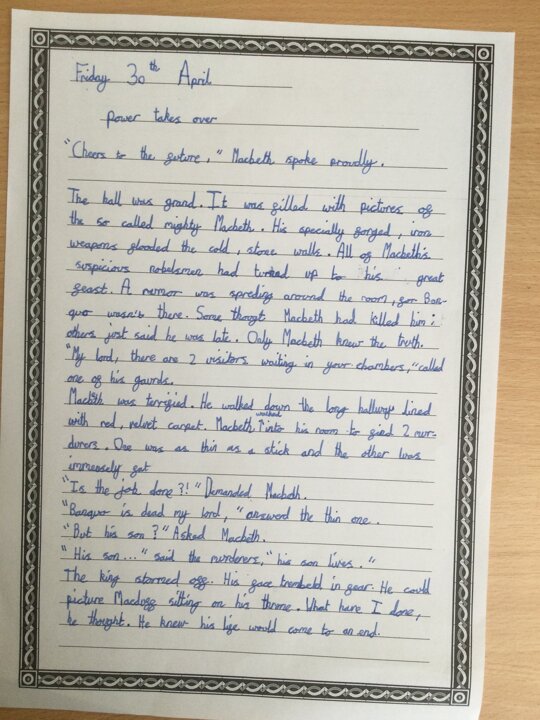 Friday 30th April
power takes over
"Cheers to the future," Macbeth spoke proudly.
The hall was grand. It was filled with pictures of
the so called mighty Macbeth. His specially forged, iron
weapons flooded the cold, stone walls. All of Macbeth's
suspicious noblemen had turned up to his great
feast. A rumor was spreding around the room, for Ban-
quo wasn't there. Some thougt Macbeth had killed him;
others just said he was late. Only Macbeth knew the truth.
"My lord, there are 2 visitors waiting in your chambers," called
one of his gaurds.
Macbeth was terrified. He walked down the long hallway lined
with red, velvet carpet. Macbeth walked into his room to find 2 mur-
derers. One was as thin as a stick and the other was
immensely fat
"Is the job done?!" Demanded Macbeth.
"Banquo is dead my lord," answerd the thin one.
"But his son?" Asked Macbeth.
"His son..." said the murderers, "his son lives."
The king stormed off. His face trembeld in fear. He could
picture Macduff sitting on his throne. What have I done,
he thought. He knew his life would come to an end.